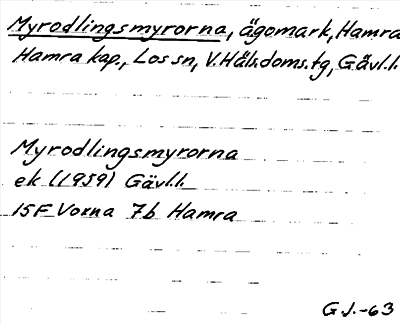 Myrodlingsmyrorna, ägomark, Hamra
Hamra kap., Los sn, V. Häls. doms. tg, Gävl. l.
Myrodlingsmyrorna
ek (1959) Gävl. l.
15F Vorna 7b Hamra
G J. -63